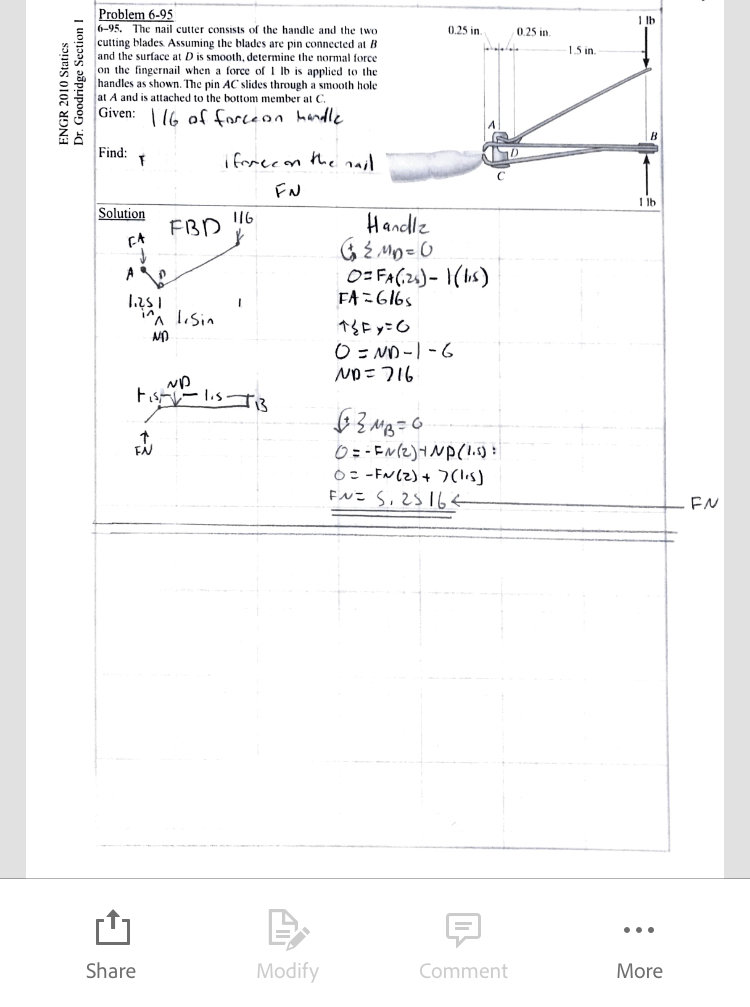 ENGR 2010 Statics
Dr. Goodridge Section 1
Problem 6-95
6-95. The nail cutter consists of the handle and the two
cutting blades. Assuming the blades are pin connected at B
and the surface at D is smooth, determine the normal force
on the fingernail when a force of 1 lb is applied to the
handles as shown. The pin AC slides through a smooth hole
at A and is attached to the bottom member at C.
0.25 in.
0.25 in.
1 lb
1.5 in.
A
D
B
C
1 lb
Given: 1 lb of force on handle
Find: force on the nail
FN
Solution
FBD
1 lb
FA
A
D
.25
in
1.5 in
ND
Handle
↺ ΣMD=0
0=FA(.25)-1(1.5)
FA=6 lbs
↑ΣFy=0
0=ND-1-6
ND=7 lb
ND
.5
1.5
B
FN
ΣMB=0
0=-FN(2)+ND(1.5)
0=-FN(2)+7(1.5)
FN= 5.25 lb
FN
Share
Modify
Comment
More